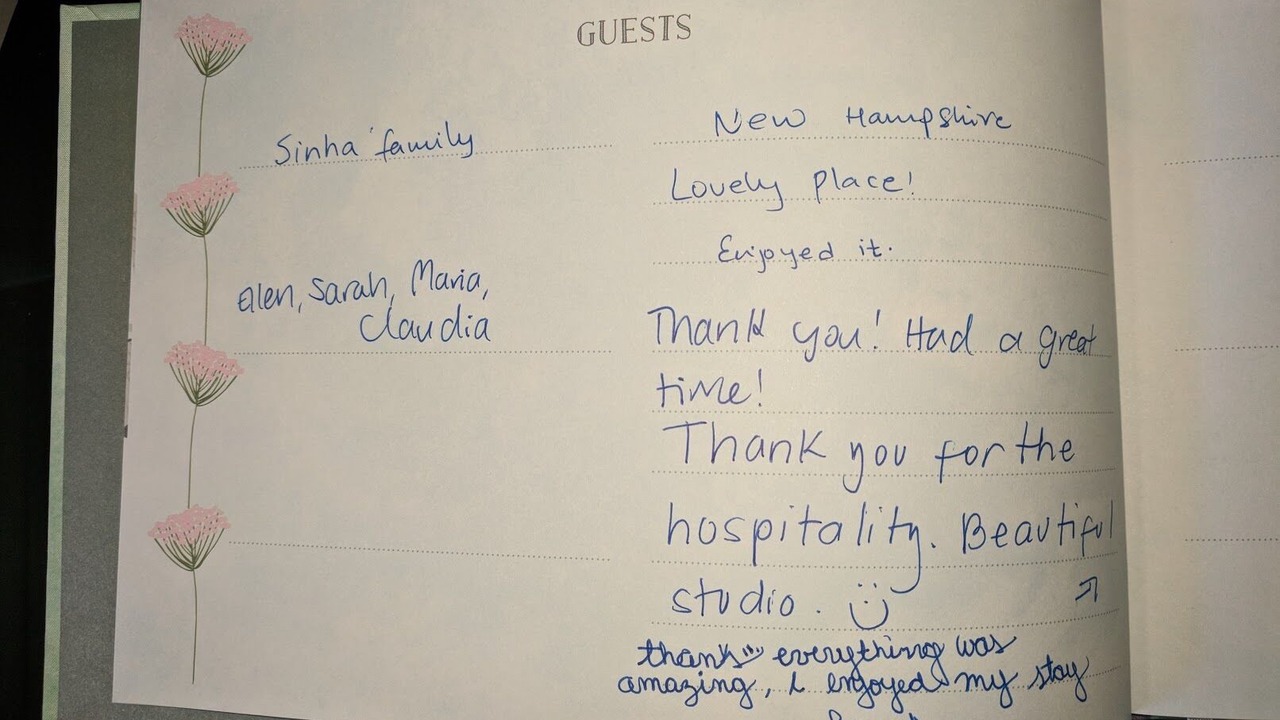 GUESTS
Sinha family
New Hampshire
Lovely place!
Enjoyed it.
Alen, Sarah, Maria,
Claudia
Thank you! Had a great
time!
Thank you for the
hospitality. Beautiful
studio. :)
thanks everything was
amazing, i enjoyed my stay